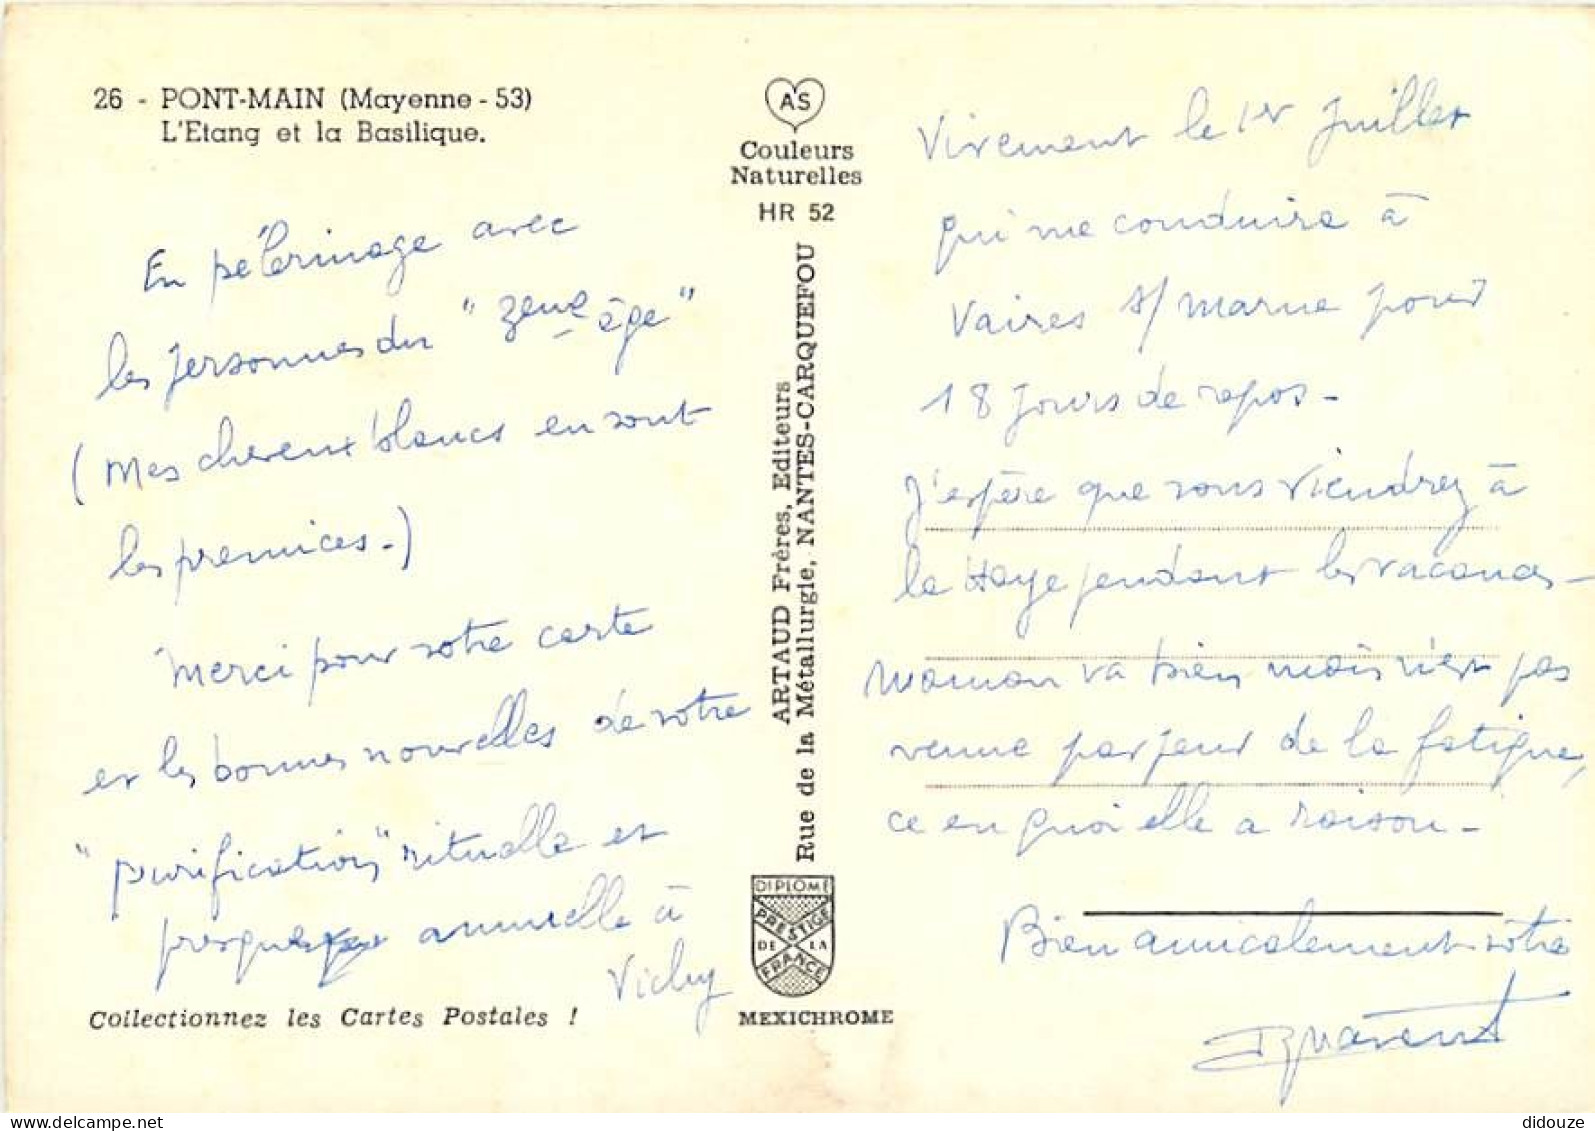 26 - PONT-MAIN (Mayenne - 53)
L'Etang et la Basilique.
En pélerinage avec
les personnes du "3eme âge"
(Mes cheveux blancs en sont
les premices.)
Merci pour votre carte
et les bonnes nouvelles de votre
"purification" rituelle et
presque annuelle à
Vichy
Collectionnez les Cartes Postales !
AS
Couleurs
Naturelles
HR 52
ARTAUD Frères, Editeurs
Rue de la Métallurgie, NANTES-CARQUEFOU
DIPLOME
PRESTIGE
DE LA
FRANCE
MEXICHROME
Vivement le 1er Juillet
qui me conduira à
Vaires s/ Marne pour
18 jours de repos -
J'espère que vous viendrez à
la Haye pendant les vacances -
Maman va bien mais n'est pas
venue par peur de la fatigue,
ce en quoi elle a raison -
Bien amicalement vôtre
didouze